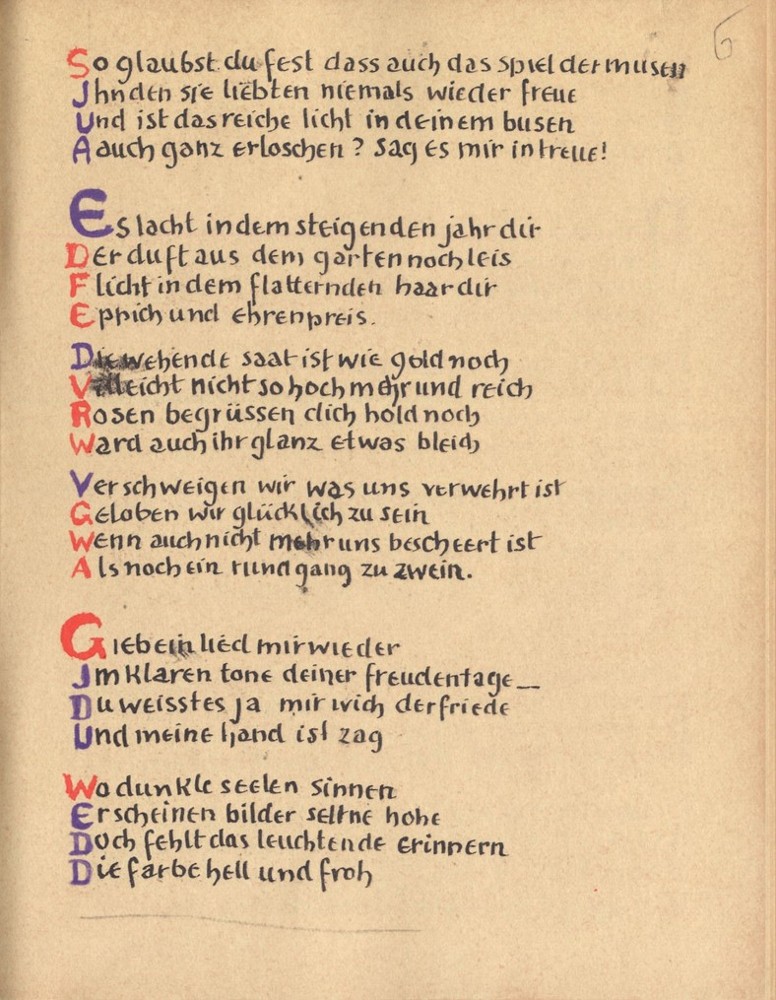 6
So glaubst du fest dass auch das spiel der musen
Ihn den sie liebten niemals wieder freue
Und ist das reiche licht in deinem busen
Aauch ganz erloschen? Sag es mir in treue!
Es lacht in dem steigenden jahr dir
Der duft aus dem garten noch leis
Flicht in dem flatternden haar dir
Eppich und ehrenpreis.
Die wehende saat ist wie gold noch
Vielleicht nicht so hoch mehr und reich
Rosen begrüssen dich hold noch
Ward auch ihr glanz etwas bleich
Verschweigen wir was uns verwehrt ist
Geloben wir glücklich zu sein
Wenn auch nicht mehr uns bescheert ist
Als noch ein rundgang zu zwein.
Gieb ein lied mir wieder
Im klaren tone deiner freudentage_
Du weisst es ja mir wich der friede
Und meine hand ist zag
Wo dunkle seelen sinnen
Erscheinen bilder seltne hohe
Doch fehlt das leuchtende erinnern
Die farbe hell und froh